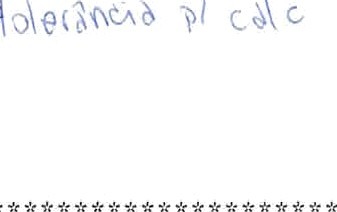 tolerância p/ calc
********************